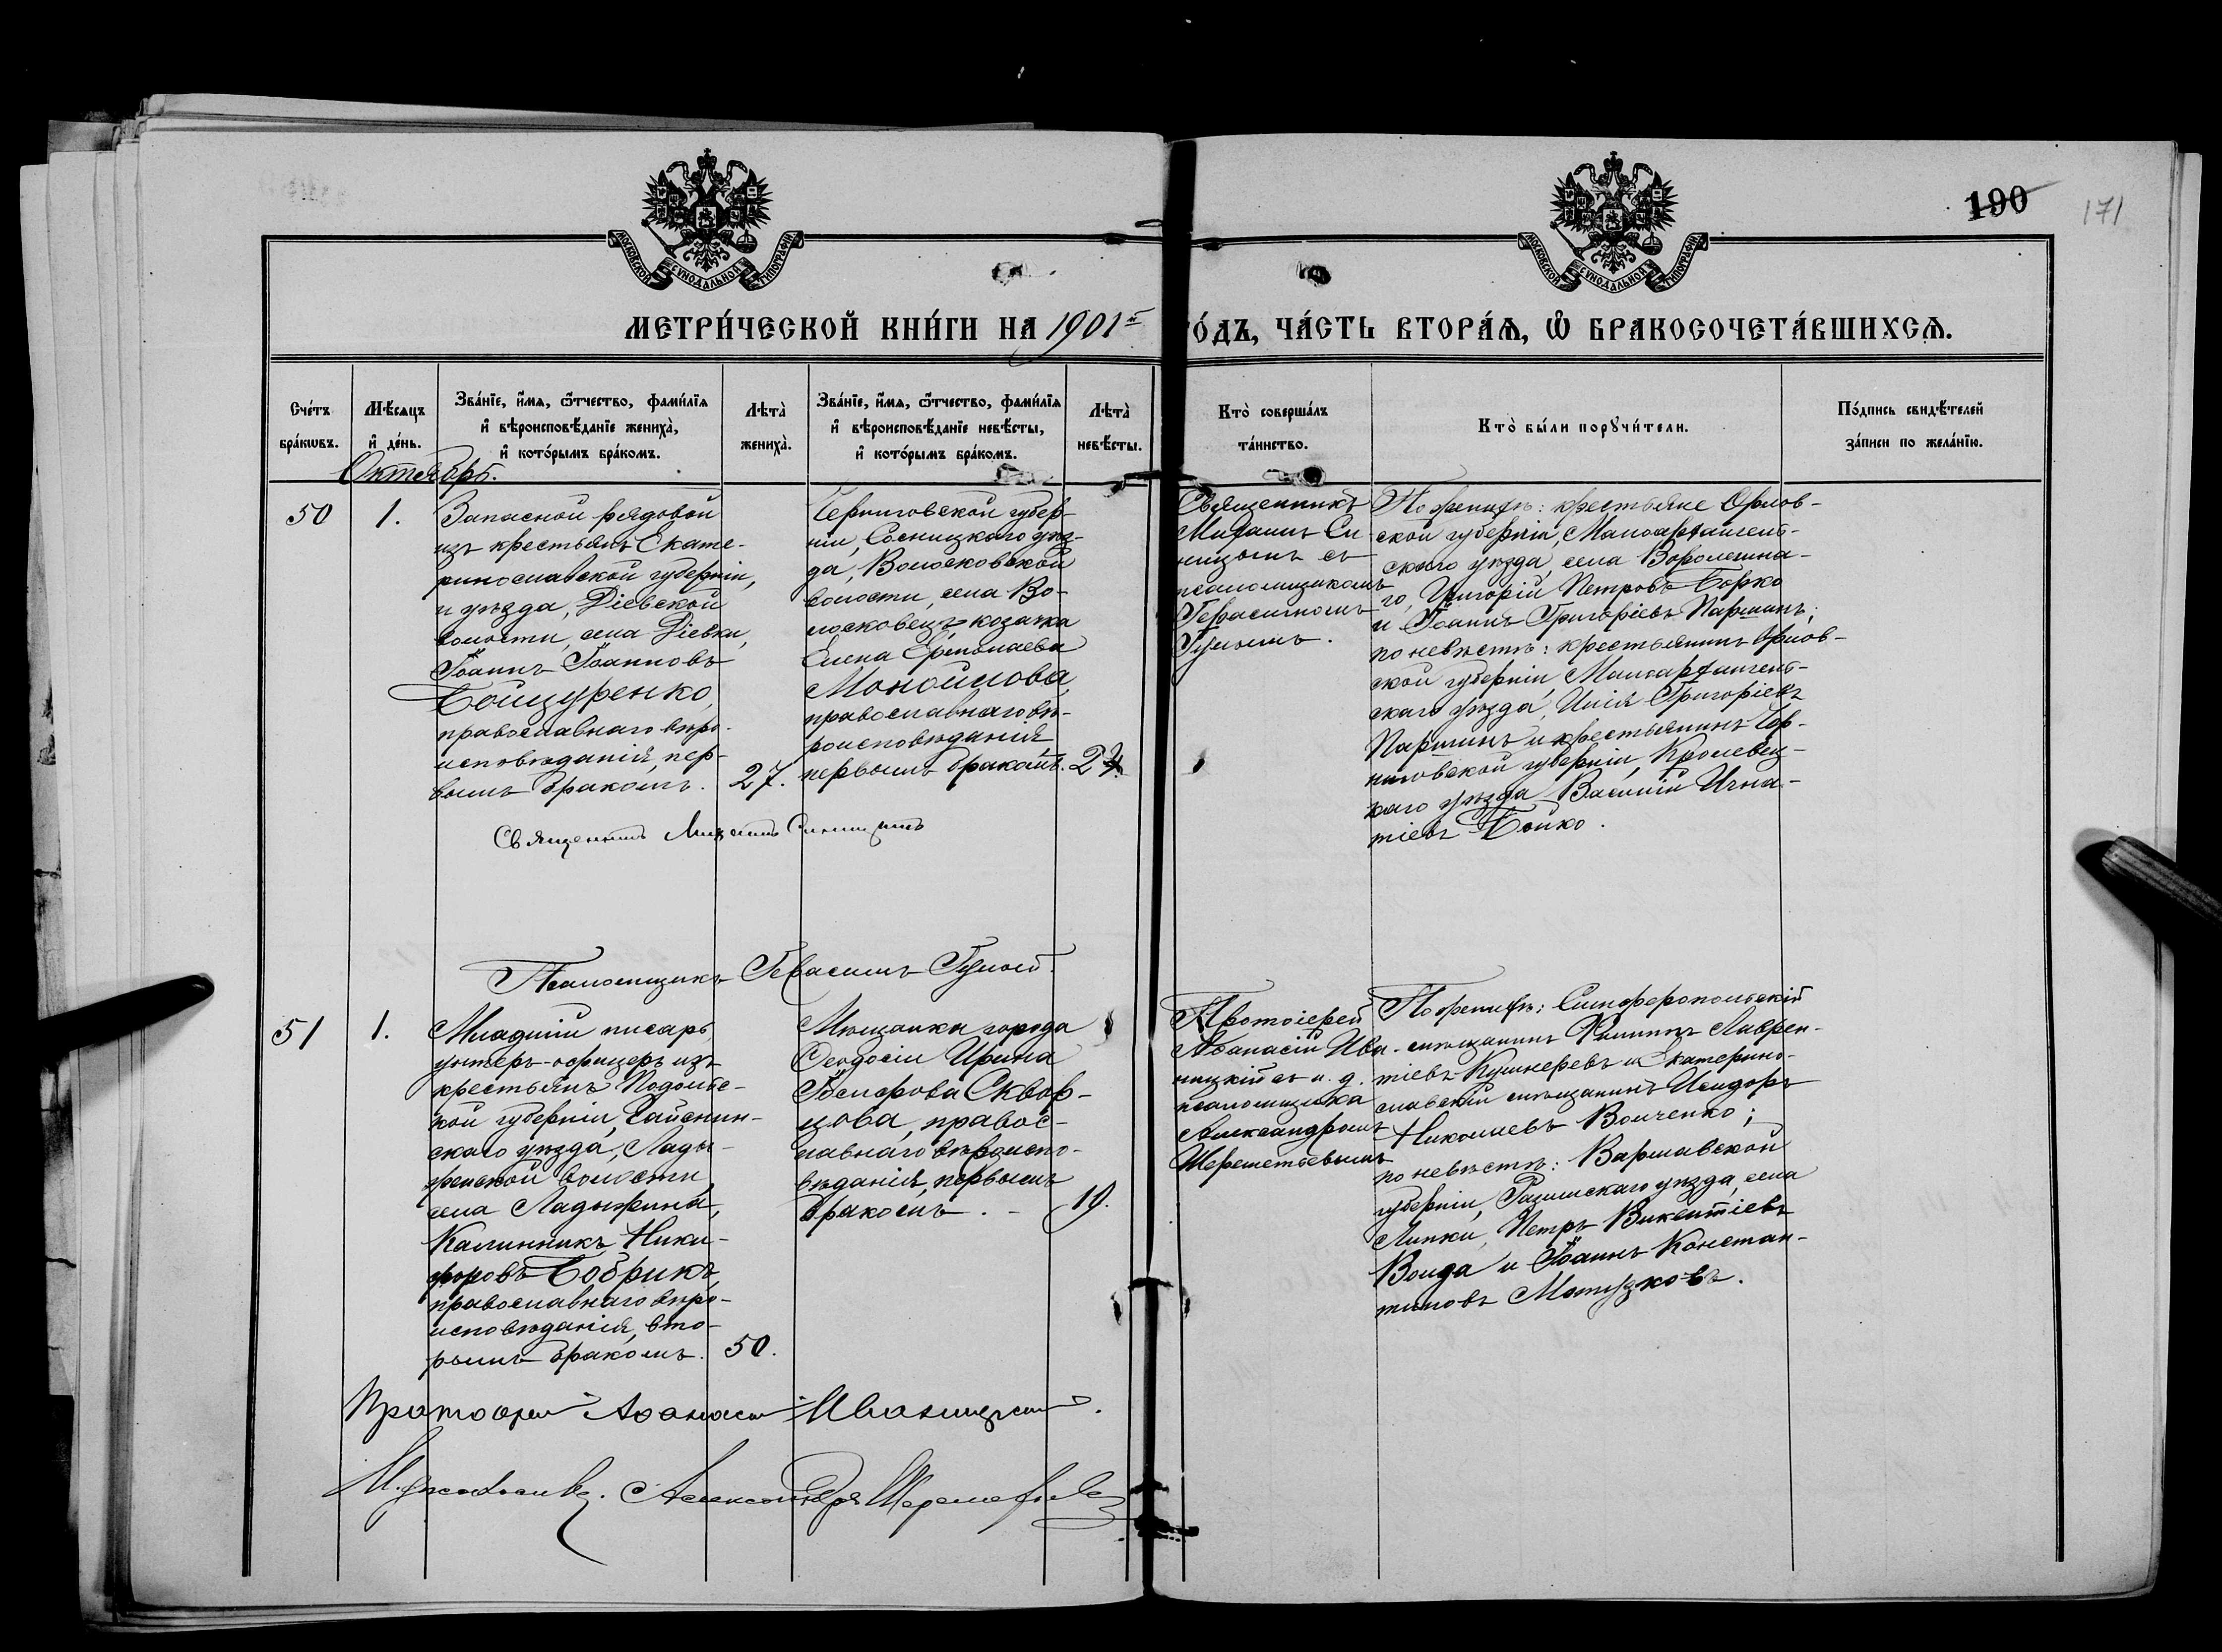 190
171
МОСКОВСКОЙ СѴНОДАЛЬНОЙ ТИПОГРАФІИ
МОСКОВСКОЙ СѴНОДАЛЬНОЙ ТИПОГРАФІИ
МЕТРИ́ЧЕСКОЙ КНИ́ГИ НА 1901й
О́ДЪ, ЧА́СТЬ ВТОРА́Ѧ, Ѡ҆ БРАКОСОЧЕТА́ВШИХСѦ.
Сче́тъ бра́кѡвъ.
Мѣ́сяцъ и҆ де́нь.
Зва́нїе, и҆́мѧ, ѻ҆́тчество, фами́лїѧ
и҆ вѣроисповѣ́данїе жениха̀,
и҆ кото́рымъ бра́комъ.
Лѣта̀ жениха̀.
Зва́нїе, и҆́мѧ, ѻ҆́тчество, фами́лїѧ
и҆ вѣроисповѣ́данїе невѣ́сты,
и҆ кото́рымъ бра́комъ.
Лѣта̀ невѣ́сты.
Кто̀ соверша́лъ
та́инство.
Кто̀ бы́ли порꙋчи́тели.
По́дпись свидѣ́телей
за́писи по жела́нїю.
Октябрь.
50
1.
Запасной рядовой
изъ крестьянъ Екате-
ринославской губерніи,
и уѣзда, Діевской
волости, села Діевки,
Іоаннъ Іоанновъ
Бощуренко,
православнаго вѣро-
исповѣданія, пер-
вымъ бракомъ.
27.
Черниговской губер-
ніи, Сосницкаго уѣз-
да, Волосковской
волости, села Во-
лосковецъ козачка
Елена Ермолаева
Монойлова,
православнаго вѣ-
роисповѣданія
первымъ бракомъ.
Священникъ
Михаилъ Си
ницынъ съ
псаломщикомъ
Герасимомъ
Гулымъ.
По женихѣ: крестьяне Орлов-
ской губерніи, Малоархангель-
скаго уѣзда, села
го, Григорій Петровъ Борко
и Іоаннъ Григоріевъ Паршинъ;
по невѣстѣ: крестьянинъ Орлов-
ской губерніи Малоархангель-
скаго уѣзда, Илія Григоріевъ
Паршинъ и крестьянинъ Чер-
ниговской губерніи, Кролевец-
каго уѣзда Василій Игна-
тіевъ Бойко.
Священникъ Михаилъ Синицынъ
Псаломщикъ Герасимъ Гулый.
51
1.
Младшій писарь
унтеръ-офицеръ изъ
крестьянъ Подольс-
кой губерніи, Гайсин-
скаго уѣзда, Лады-
женской волости
села Ладыжина,
Калинникъ Ники-
форовъ Бобрикъ,
православнаго вѣро-
исповѣданія, вто-
рымъ бракомъ.
50.
Мѣщанка города
Ѳеодосіи Ирина
Сквор-
цова, правос-
лавнаго вѣроиспо-
вѣданія, первымъ
бракомъ.
19.
Протоіерей
Аѳанасій Ива-
ницкій съ и. д.
псаломщика
Александромъ
Шереметьевымъ
По женихѣ: Симферопольскій
мѣщанинъ Филиппъ Лаврен-
тіевъ Кушнеревъ и Екатерино-
славскій мѣщанинъ Исидоръ
Николаевъ Волченко;
по невѣстѣ: Варшавской
губерніи, уѣзда, села
Липки, Петръ Викентіевъ
Войда и Іоаннъ Констан-
тиновъ Матушковъ.
Протоіерей Аѳанасій Иваницкій.
И. д. псаломщика. Александръ Шереметьевъ